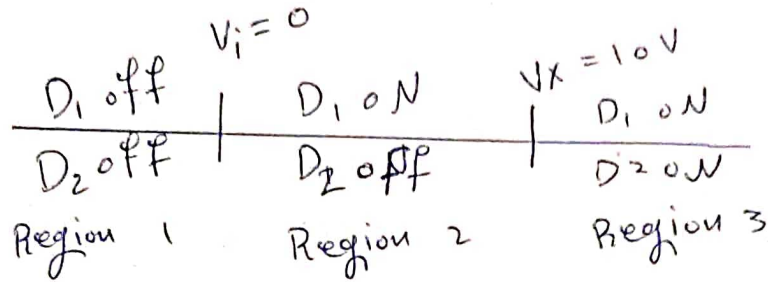 Vi = 0
Vx = 10V
D1 off D1 ON D1 ON
D2 off D2 off D2 ON
Region 1 Region 2 Region 3